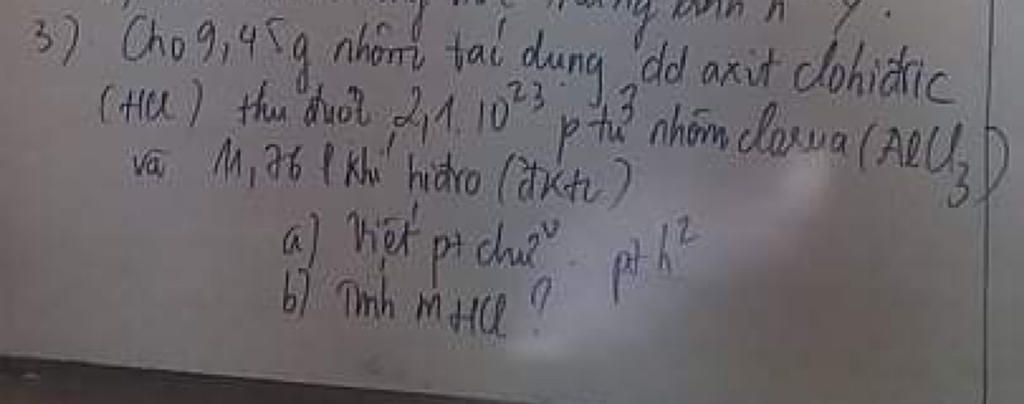 3) Cho 9,45g nhôm tác dụng dd axit clohiđric
(HCl) thu được 2,1.10²³ p tử nhôm clorua (AlCl₃)
và 11,76 l khí hiđro (đktc)
a) Viết pt chữ. pthh
b) Tính mHCl?